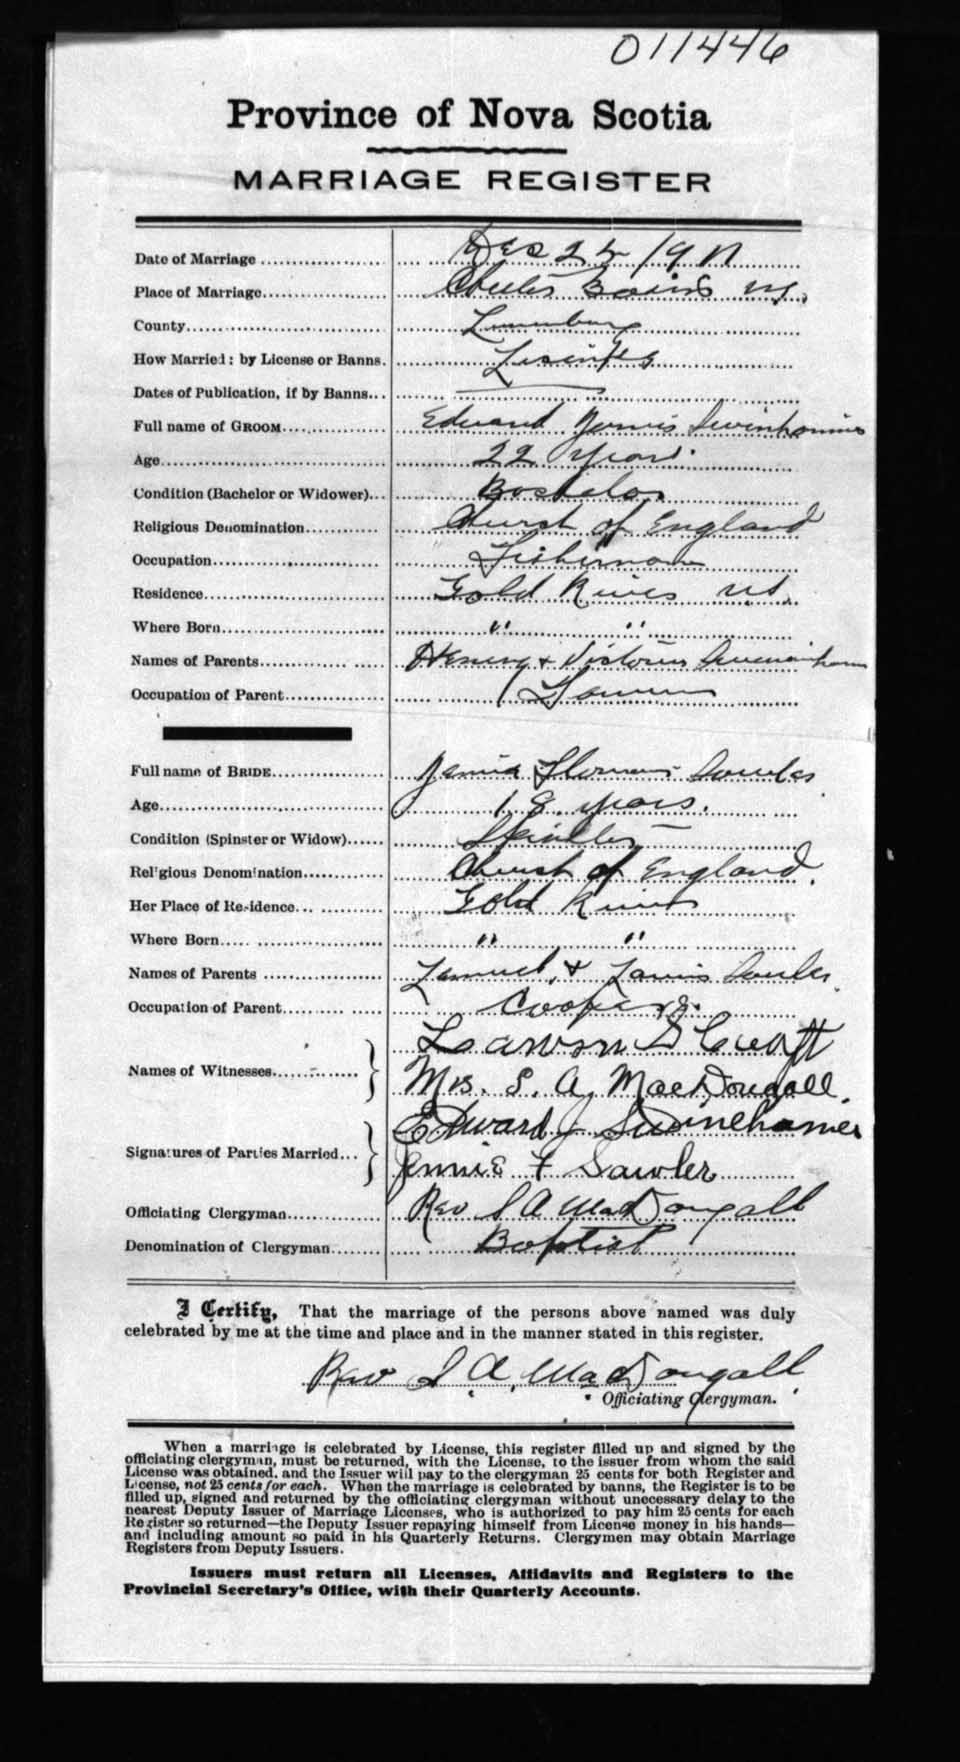 011446
Province of Nova Scotia
MARRIAGE REGISTER
Date of Marriage Dec 25 1911
Place of Marriage Chester Basin N.S.
County Lunenburg
How Married: by License or Banns. License
Dates of Publication, if by Banns
Full name of GROOM Edward James Swinehamer
Age 22 years.
Condition (Bachelor or Widower) Bachelor
Religious Denomination Church of England
Occupation Fisherman
Residence Gold River N.S.
Where Born " "
Names of Parents Henery &
Occupation of Parent Farmer
Full name of BRIDE Sawler
Age 18 years.
Condition (Spinster or Widow) Spinster
Religious Denomination Church of England.
Her Place of Residence Gold River
Where Born " "
Names of Parents Lemuel & Sawler.
Occupation of Parent Cooper.
Names of Witnesses
Mrs. S. A. MacDougall.
Signatures of Parties Married Edward J Swinehamer
Jennie F Sawler
Officiating Clergyman Rev S A MacDougall
Denomination of Clergyman Baptist
I Certify, That the marriage of the persons above named was duly
celebrated by me at the time and place and in the manner stated in this register.
Rev S. A. MacDougall.
Officiating Clergyman.
When a marriage is celebrated by License, this register filled up and signed by the
officiating clergyman, must be returned, with the License, to the issuer from whom the said
License was obtained, and the Issuer will pay to the clergyman 25 cents for both Register and
License, not 25 cents for each. When the marriage is celebrated by banns, the Register is to be
filled up, signed and returned by the officiating clergyman without unecessary delay to the
nearest Deputy Issuer of Marriage Licenses, who is authorized to pay him 25 cents for each
Register so returned—the Deputy Issuer repaying himself from License money in his hands—
and including amount so paid in his Quarterly Returns. Clergymen may obtain Marriage
Registers from Deputy Issuers.
Issuers must return all Licenses, Affidavits and Registers to the
Provincial Secretary's Office, with their Quarterly Accounts.